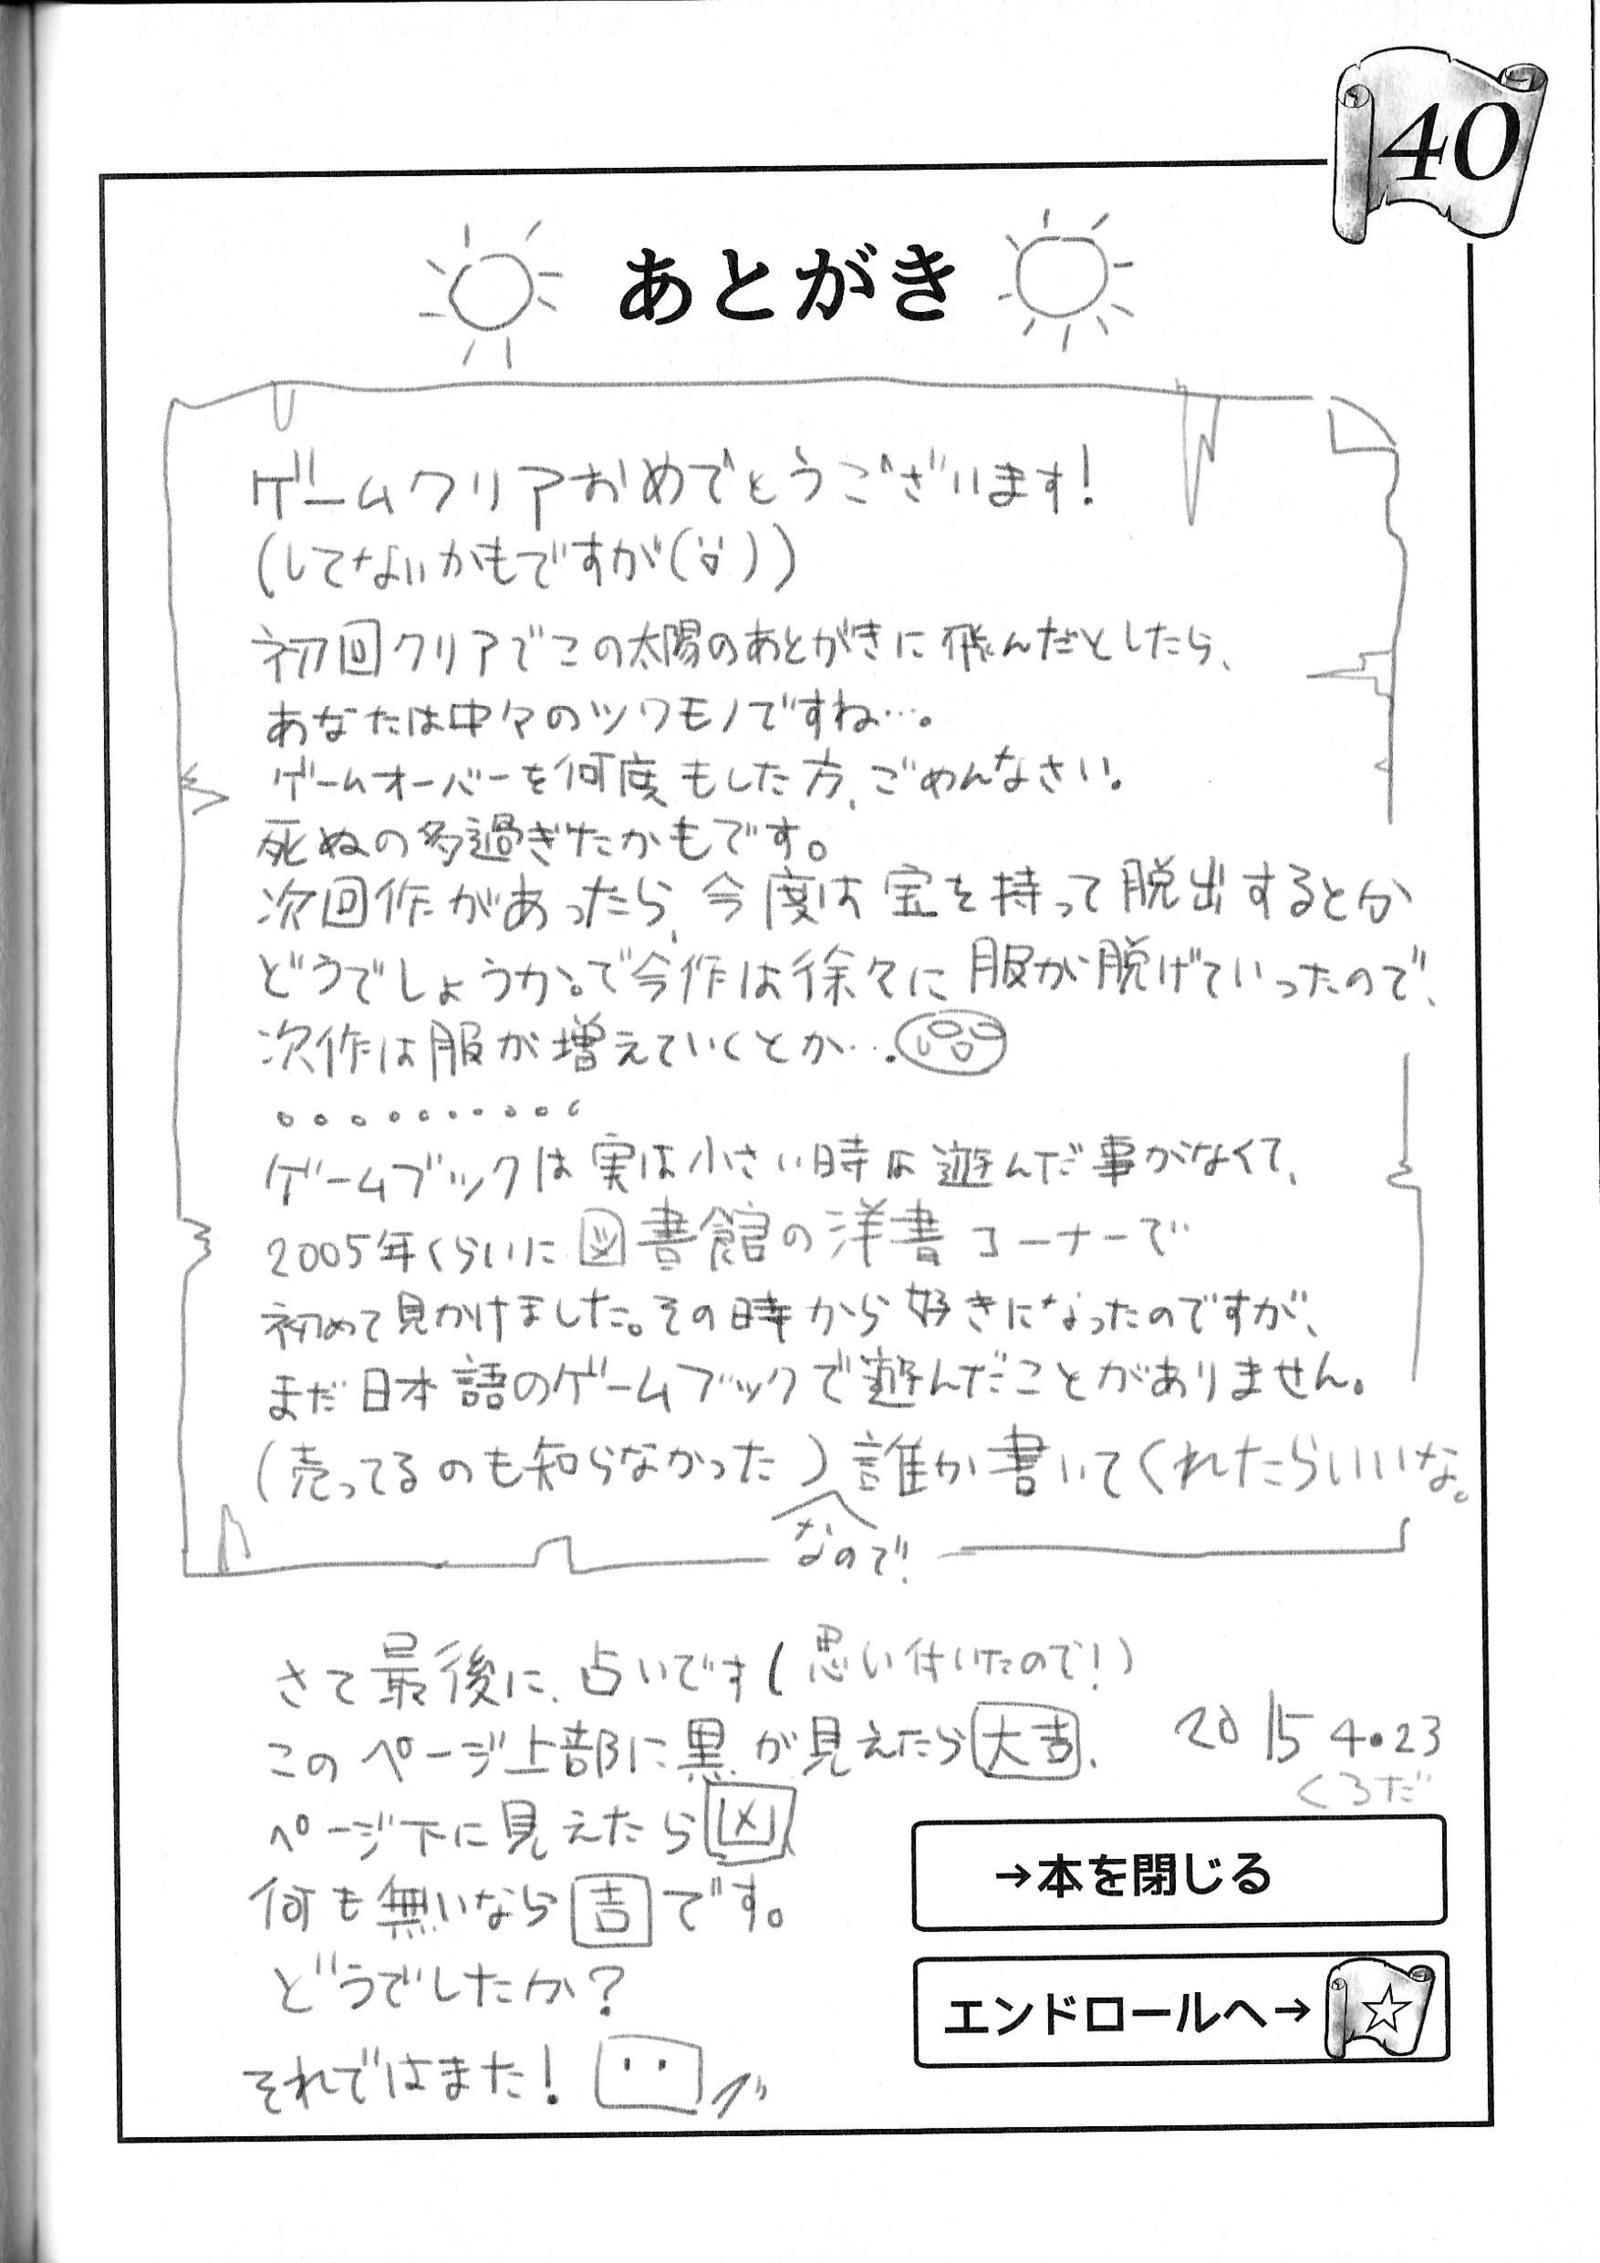 40
あとがき
ゲームクリアおめでとうございます!
(してないかもですが( ))
初回クリアでこの太陽のあとがきに飛んだとしたら、
あなたは中々のツワモノですね…。
ゲームオーバーを何度もした方、ごめんなさい。
死ぬの多過ぎたかもです。
次回作があったら、今度は宝を持って脱出するとか
どうでしょうか。で今作は徐々に服が脱げていったので、
次作は服が増えていくとか….
。。。。。。。。。。
ゲームブックは実は小さい時は遊んだ事がなくて、
2005年くらいに図書館の洋書コーナーで
初めて見かけました。その時から好きになったのですが、
まだ日本語のゲームブックで遊んだことがありません。
(売ってるのも知らなかった)誰か書いてくれたらいいな。
なので!
さて最後に、占いです(思い付いたので!)
このページ上部に黒が見えたら大吉、
2015 4.23
くろだ
ページ下に見えたら凶
何も無いなら吉です。
どうでしたか?
それではまた!
→本を閉じる
エンドロールへ→☆